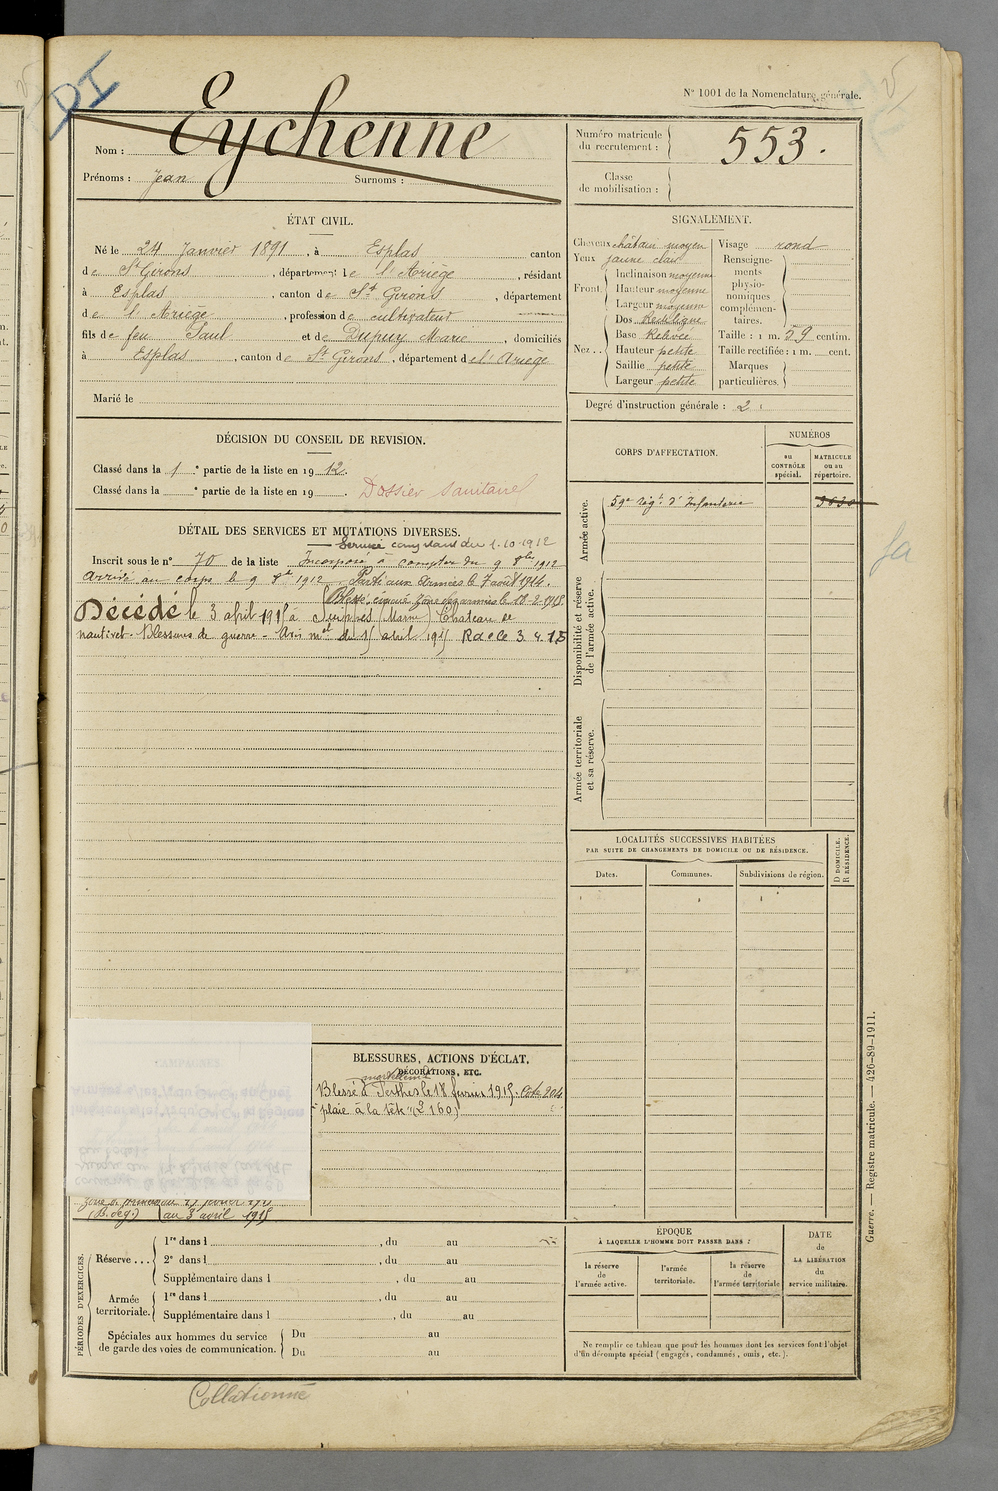 DI
N° 1001 de la Nomenclature générale.
Nom : Eychenne
Prénoms : Jean Surnoms :
Numéro matricule du recrutement : 553.
Classe de mobilisation :
ÉTAT CIVIL.
Né le 24 Janvier 1891, à Esplas canton
de St Girons, département de l'Ariège, résidant
à Esplas, canton de St Girons, département
de l'Ariège, profession de cultivateur
fils de feu Paul et de Dupuy Marie, domiciliés
à Esplas, canton de St Girons, département de l'Ariège
Marié le
SIGNALEMENT.
Cheveux châtain moyen
Yeux jaune clair
Front Inclinaison moyenne
Hauteur moyenne
Largeur moyenne
Nez Dos Rectiligne
Base Relevée
Hauteur petite
Saillie petite
Largeur petite
Visage rond
Renseignements physionomiques complémentaires.
Taille : 1 m. 59 centim.
Taille rectifiée : 1 m. cent.
Marques particulières.
Degré d'instruction générale : 2.
DÉCISION DU CONSEIL DE REVISION.
Classé dans la 1e partie de la liste en 1912.
Classé dans la e partie de la liste en 19 . Dossier sanitaire
CORPS D'AFFECTATION.
NUMÉROS
au CONTRÔLE spécial.
MATRICULE ou au répertoire.
Armée active.
59e Régt d'Infanterie
Disponibilité et réserve de l'armée active.
Armée territoriale et sa réserve.
DÉTAIL DES SERVICES ET MUTATIONS DIVERSES.
Service comptant du 1.10.1912
Inscrit sous le n° 70 de la liste Incorporé à compter du 9 8bre 1912
Arrivé au corps le 9 8bre 1912. Parti aux armées le 7 août 1914.
Blessé, évacué zône des armées le 18-2-1915.
Décédé le 3 avril 1915 à Suippes (Marne) Chateau de
nantivet. Blessure de guerre. Avis mel du 15 avril 1915 Rd e Ce 3 4 15
LOCALITÉS SUCCESSIVES HABITÉES
PAR SUITE DE CHANGEMENTS DE DOMICILE OU DE RÉSIDENCE.
Dates. Communes. Subdivisions de région. D DOMICILE. R RÉSIDENCE.
BLESSURES, ACTIONS D'ÉCLAT,
DÉCORATIONS, ETC.
Blessé à Perthes le 18 février 1915.
"plaie à la tête"
au 3 avril 1915
PÉRIODES D'EXERCICES.
Réserve ... 1re dans l , du au
2e dans l , du au
Supplémentaire dans l , du au
Armée territoriale. 1re dans l , du au
Supplémentaire dans l , du au
Spéciales aux hommes du service de garde des voies de communication. Du au
Du au
ÉPOQUE
À LAQUELLE L'HOMME DOIT PASSER DANS :
la réserve de l'armée active.
l'armée territoriale.
la réserve de l'armée territoriale
DATE de LA LIBÉRATION du service militaire.
Ne remplir ce tableau que pour les hommes dont les services font l'objet
d'un décompte spécial (engagés, condamnés, omis, etc.).
Guerre. — Registre matricule. — 426-89-1911.
Collationné